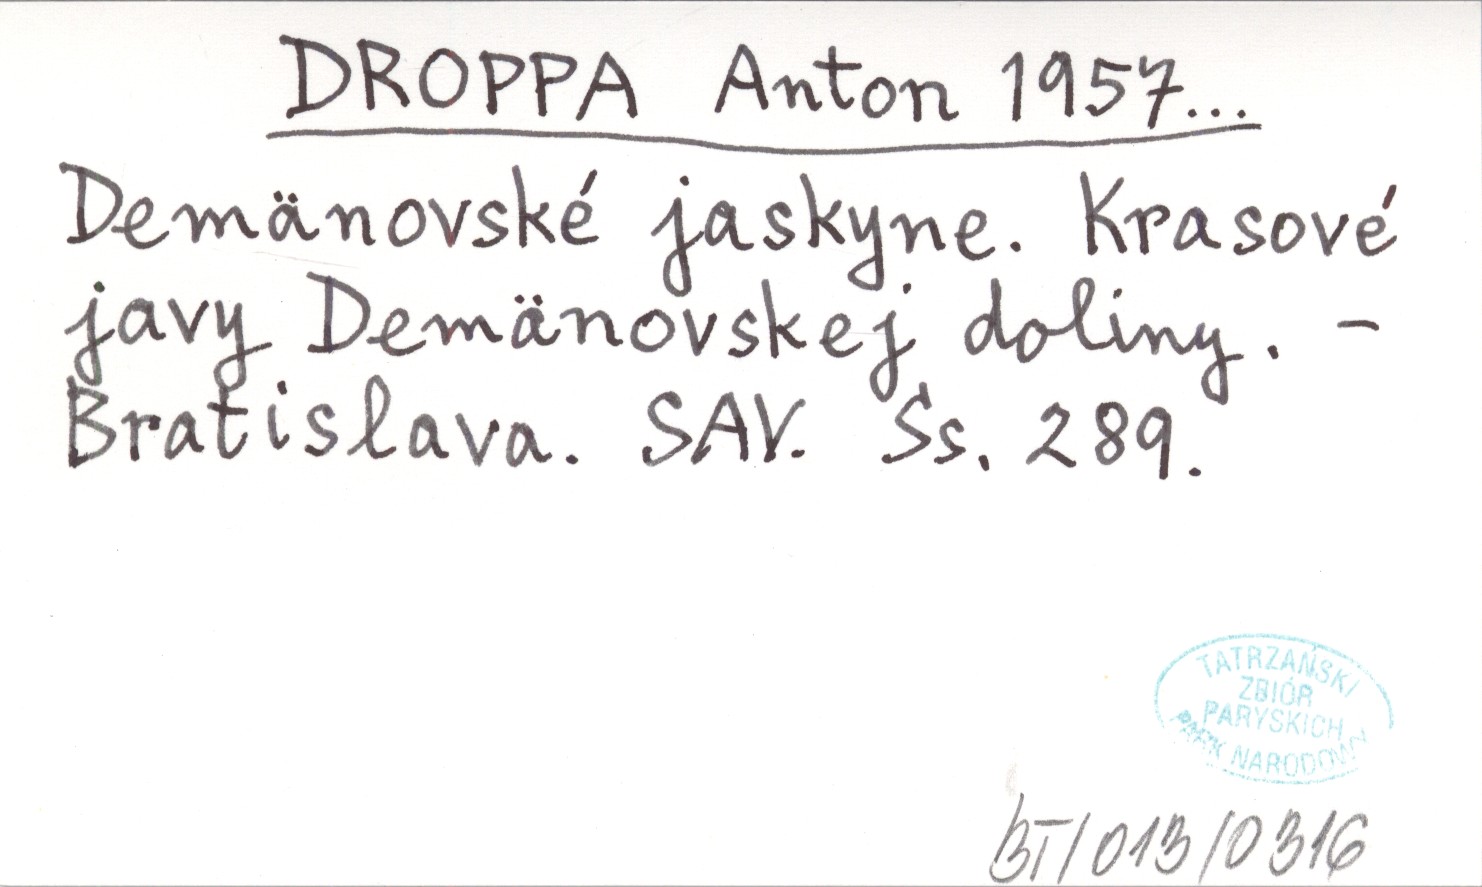 DROPPA Anton 1957...
Demänovské jaskyne. Krasové
javy Demänovskej doliny. –
Bratislava. SAV. Ss. 289.
TATRZAŃSKI
ZBIÓR
PARYSKICH
PARK NARODOWY
BT/013/0316